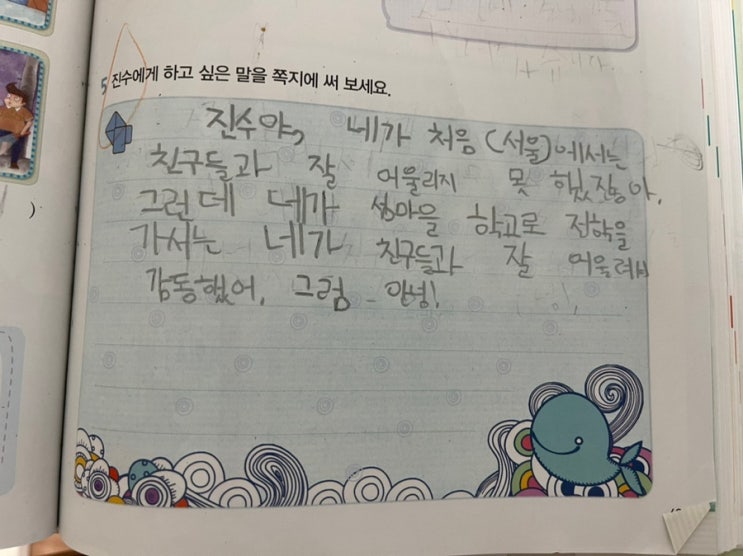 5 진수에게 하고 싶은 말을 쪽지에 써 보세요.
진수야, 네가 처음(서울)에서는
친구들과 잘 어울리지 못 했잖아.
그런데 네가 섬마을 학교로 전학을
가서는 네가 친구들과 잘 어울려서
감동했어. 그럼 안녕!
)